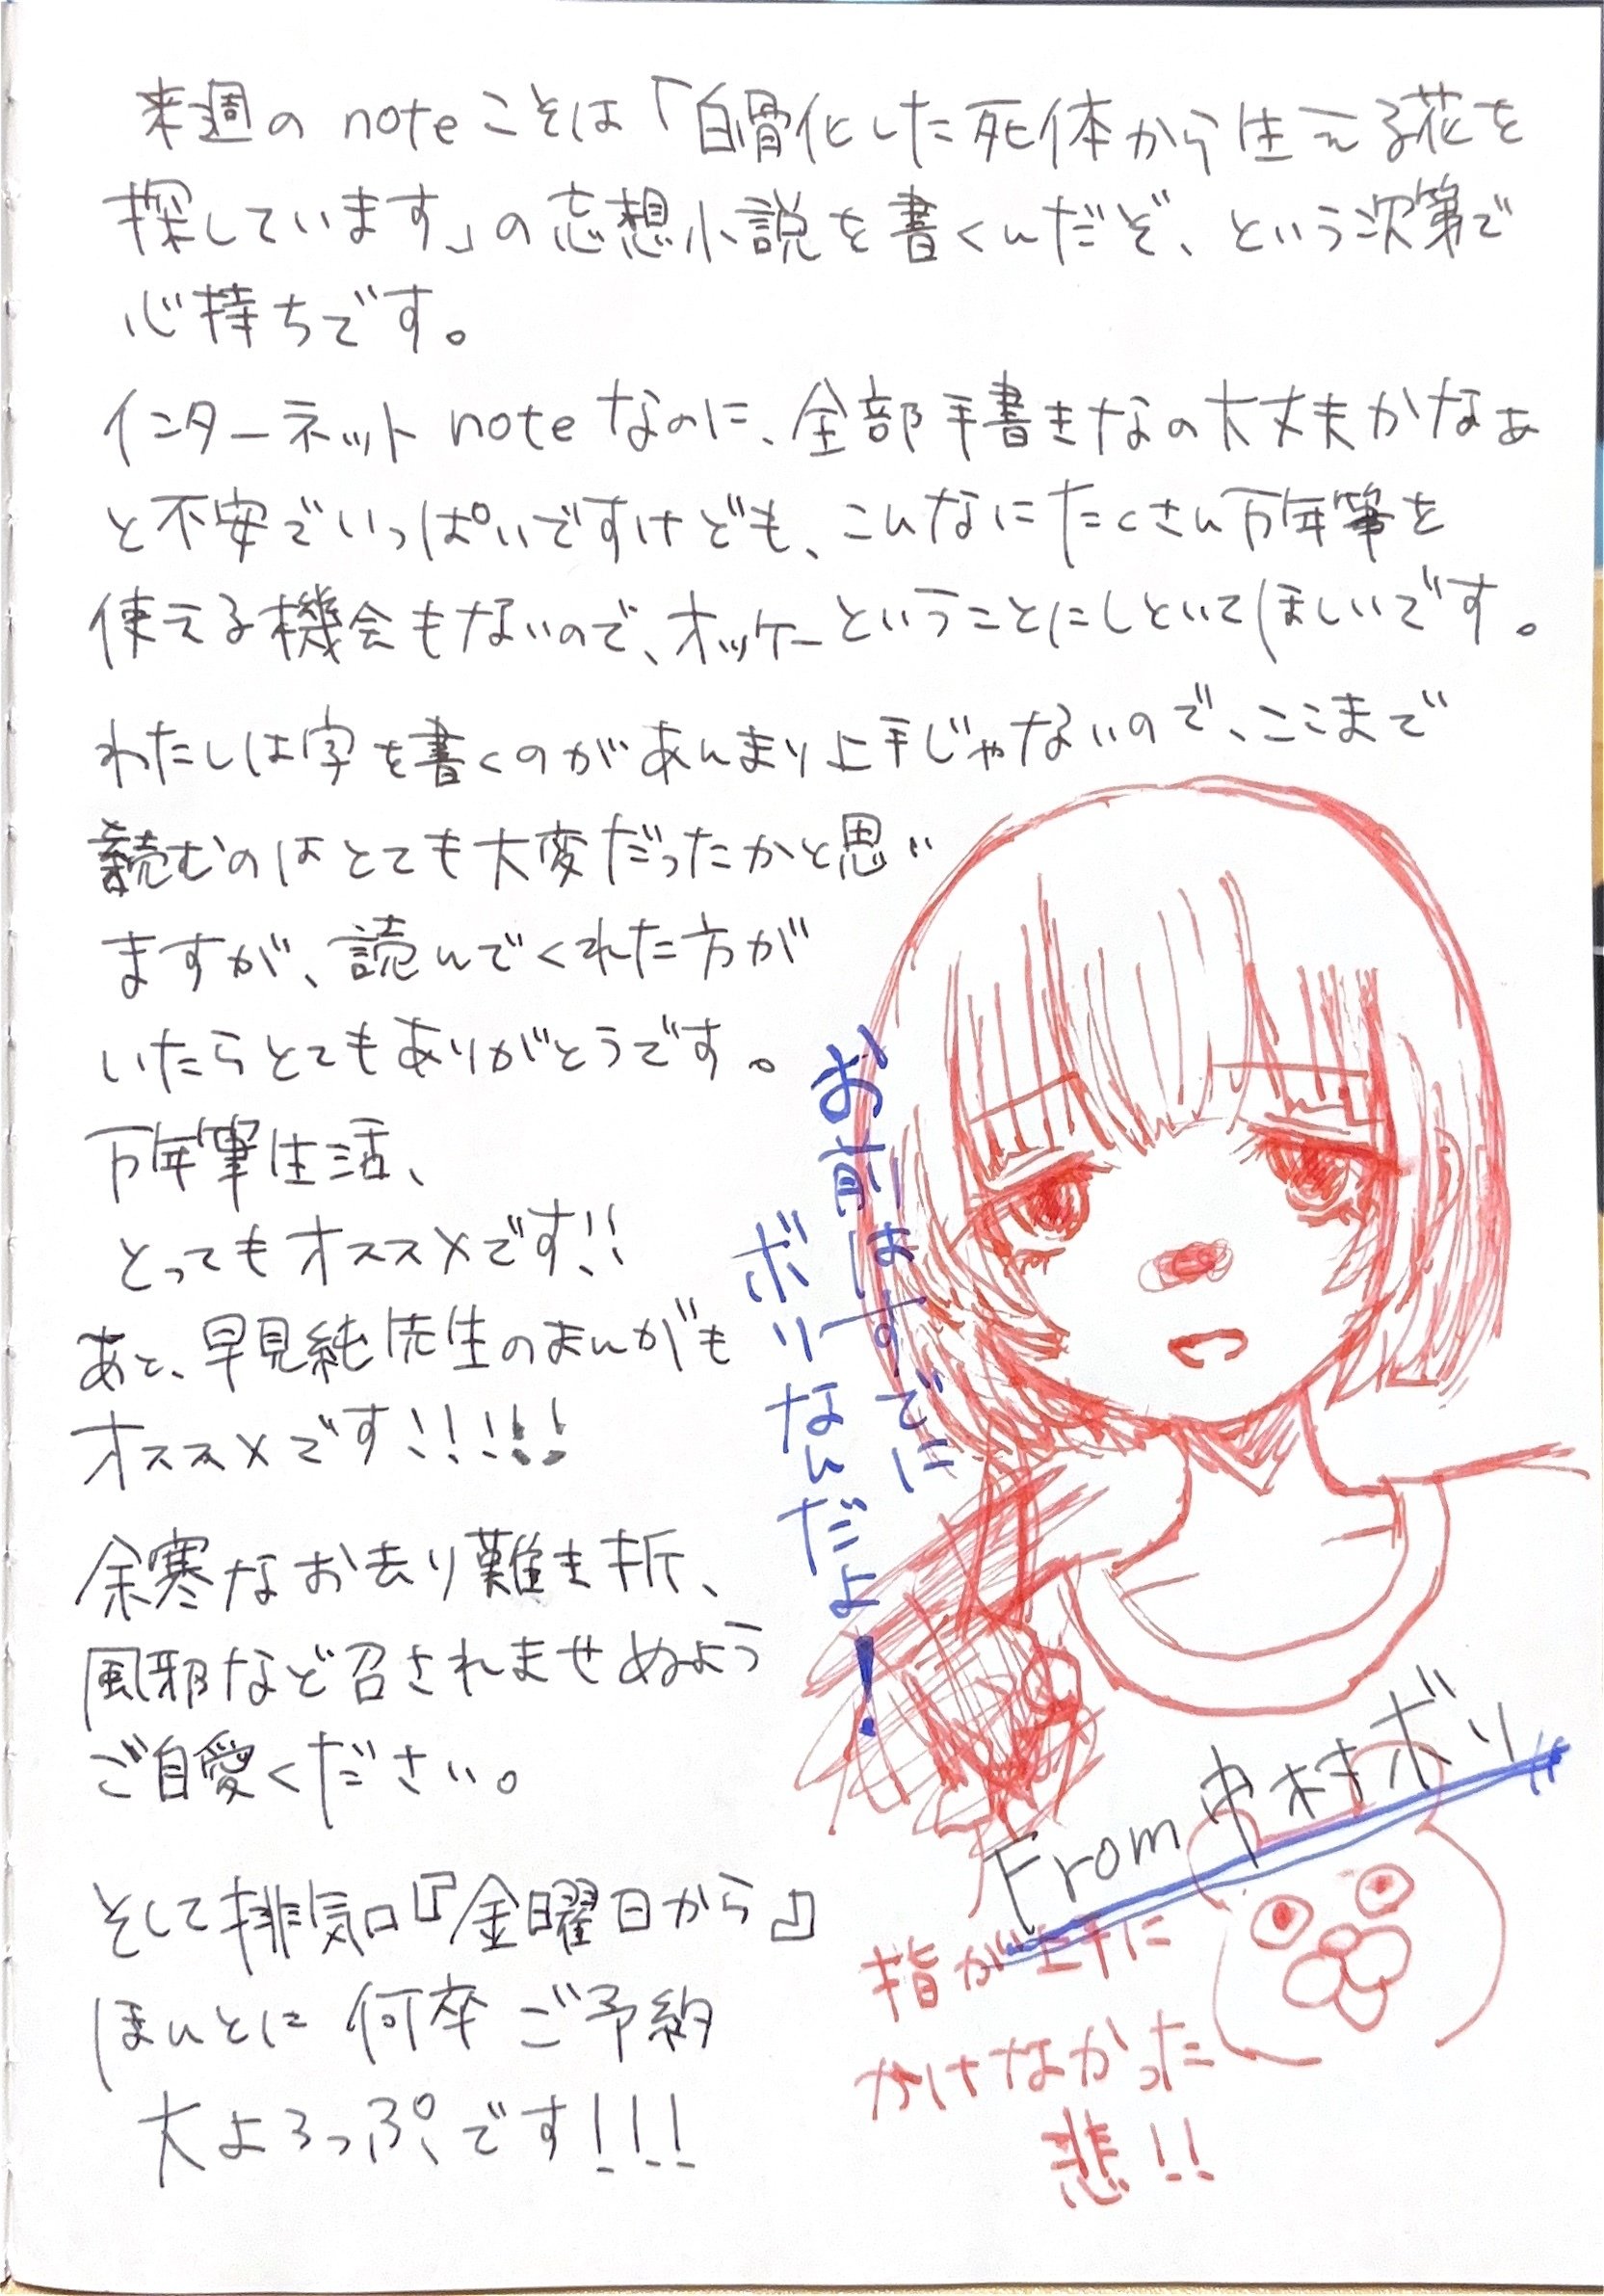 来週の note こそは「白骨化した死体から生える花を
探しています」の妄想小説を書くんだぞ、という次第で
心持ちです。
インターネット note なのに、全部手書きなの大丈夫かなぁ
と不安でいっぱいですけども、こんなにたくさん万年筆を
使える機会もないので、オッケーということにしといてほしいです。
わたしは字を書くのがあんまり上手じゃないので、ここまで
読むのはとても大変だったかと思い
ますが、読んでくれた方が
いたらとてもありがとうです。
万年筆生活、
とってもオススメです!!
あと、早見純先生のまんがも
オススメです!!!!!
余寒なお去り難き折、
風邪など召されませぬよう
ご自愛ください。
そして排気口『金曜日から』
ほんとに 何卒 ご予約
大よろっぷです!!!
お前はすでに
ボリなんだよ!
From 中村ボリ
指が上手に
かけなかった
悲!!